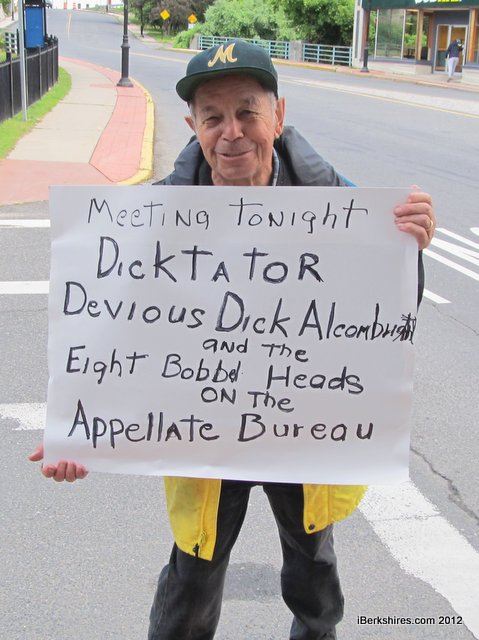 M
MEETING TONIGHT
DICKTATOR
DEVIOUS DICK Alcombright
AND THE
EIGHT BOBBEL HEADS
ON THE
APPELLATE BUREAU
iBerkshires.com 2012